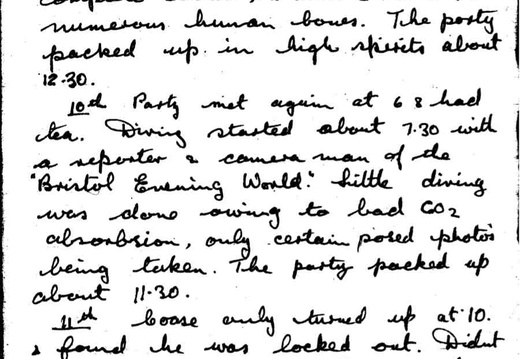 numerous human bones. The party
packed up in high spirits about
12.30.
10th Party met again at 6 & had
tea. Diving started about 7.30 with
a reporter & camera man of the
"Bristol Evening World." Little diving
was done owing to bad CO2
absorbsion, only certain posed photos
being taken. The party packed up
about 11.30.
11th Coase only turned up at 10.
& found he was locked out. Didnt